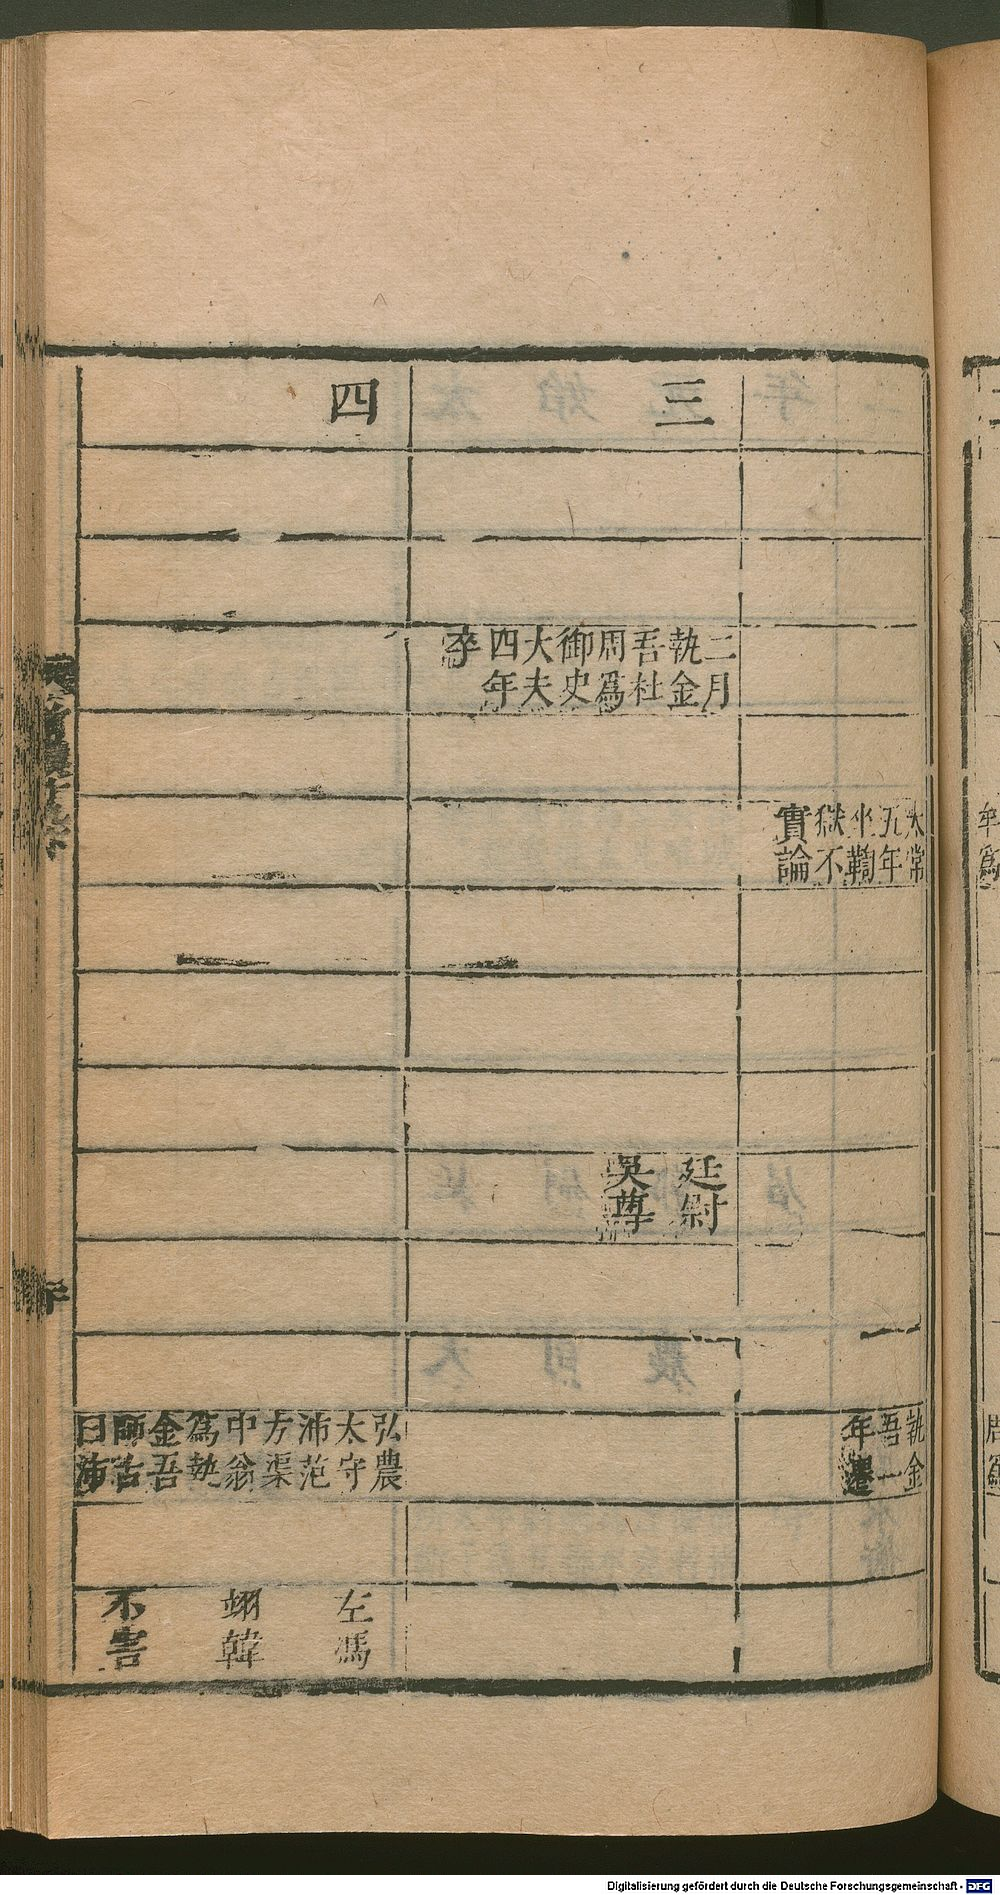 大常
五年
坐鞫
獄不
實論
執金
吾一
年遷
三
二月
執金
吾杜
周爲
御史
大夫
四年
卒
廷尉
吳尊
四
弘農
太守
沛范
方渠
中翁
爲執
金吾
師古
曰沛
左馮
翊韓
不害
Digitalisierung gefördert durch die Deutsche Forschungsgemeinschaft - DFG